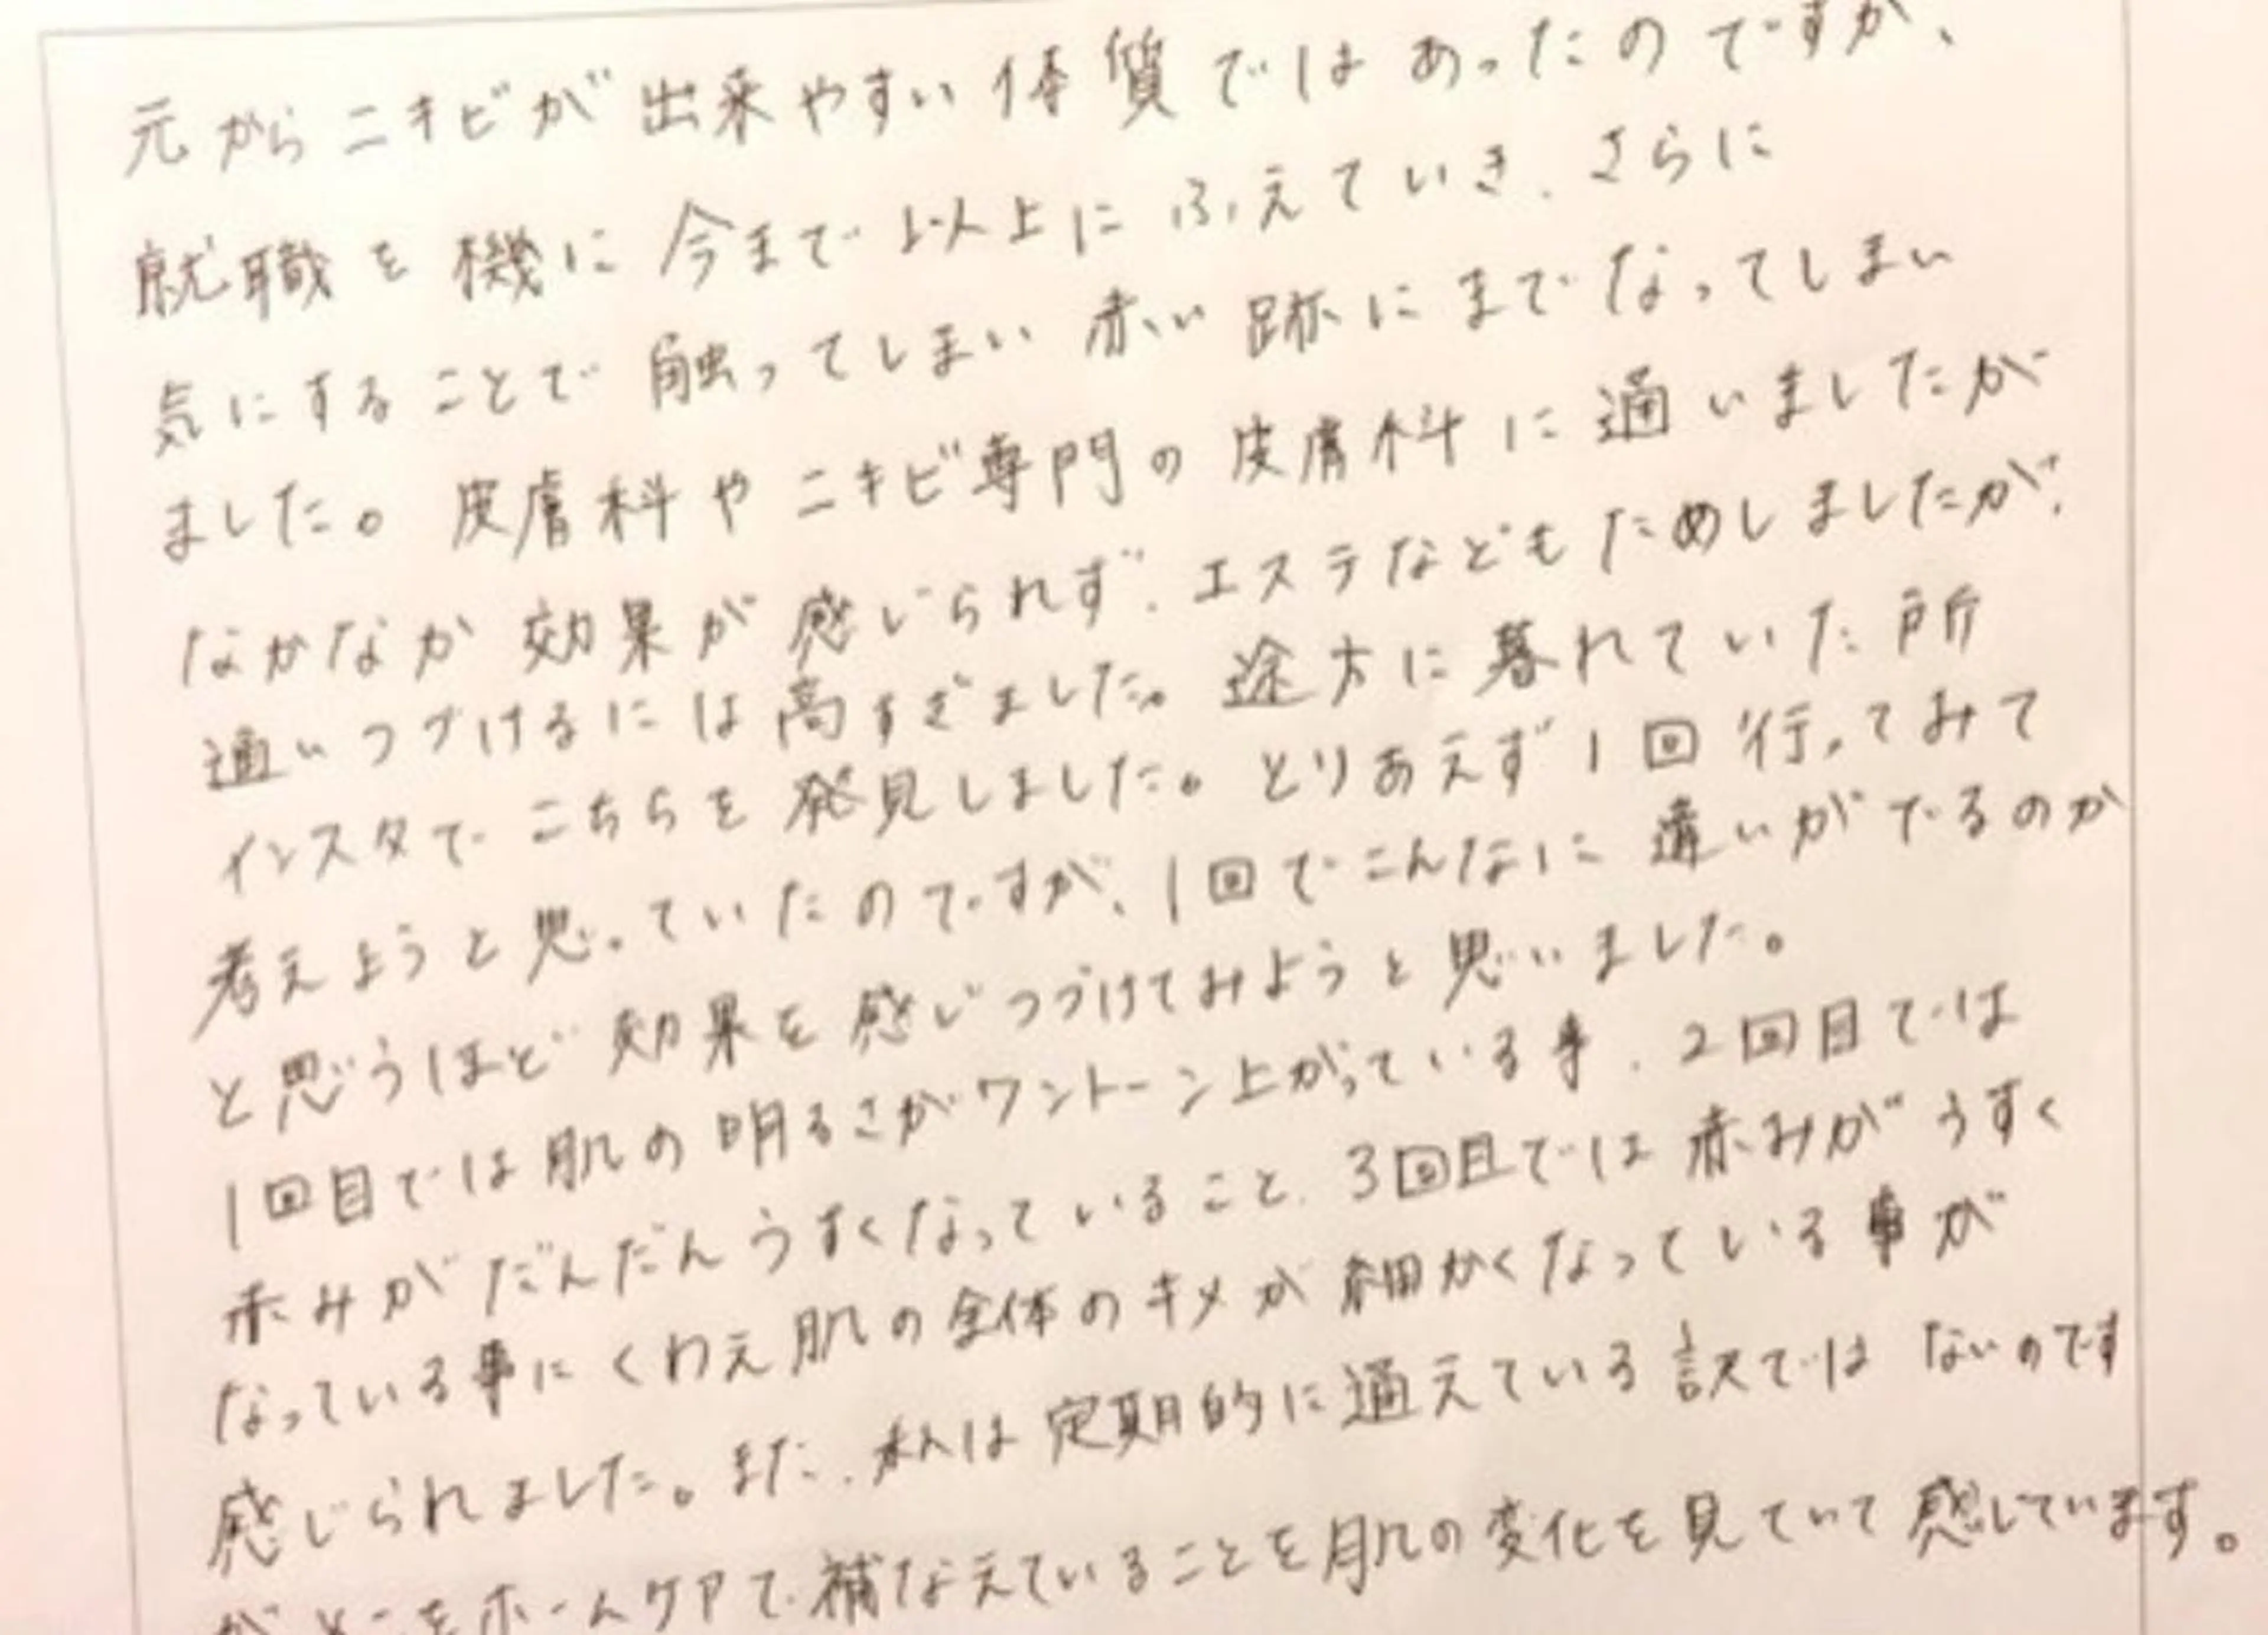 元からニキビが出来やすい体質ではあったのですが、
就職を機に今まで以上にふえていき、さらに
気にすることで触ってしまい赤い跡にまでなってしまい
ました。皮膚科やニキビ専門の皮膚科に通いましたが
なかなか効果が感じられず、エステなどもためしましたが、
通いつづけるには高すぎました。途方に暮れていた所
インスタでこちらを発見しました。とりあえず1回行ってみて
考えようと思っていたのですが、1回でこんなに違いがでるのか
と思うほど効果を感じつづけてみようと思いました。
1回目では肌の明るさがワントーン上がっている事、2回目では
赤みがだんだんうすくなっていること、3回目では赤みがうすく
なっている事にくわえ肌の全体のキメが細かくなっている事が
感じられました。また、私は定期的に通えている訳ではないのです
が そこをホームケアで補なえていることを肌の変化を見ていて感じています。